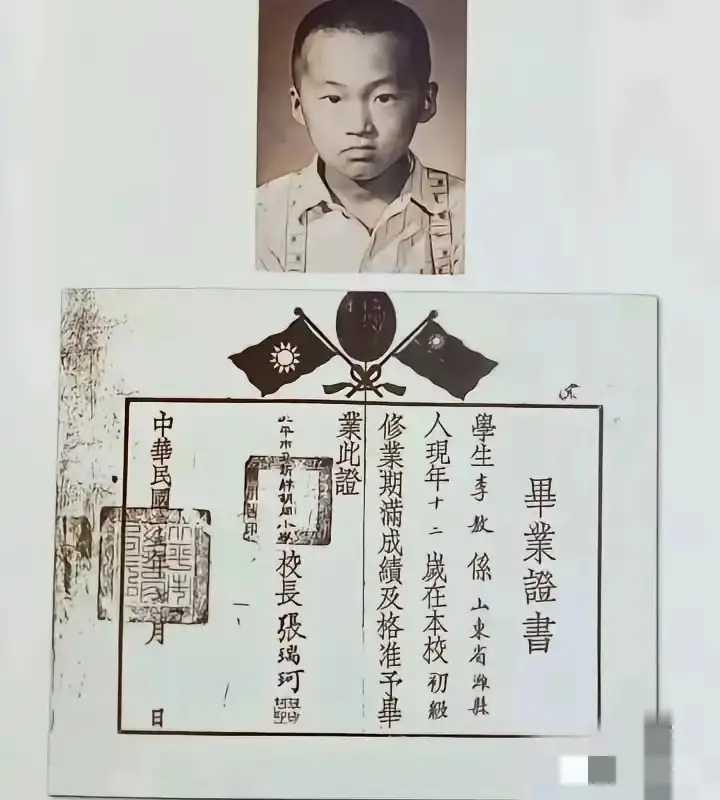 畢業證書
學生李敖係山東省濰縣
人現年十二歲在本校初級
修業期滿成績及格准予畢
業此證
北平市立新鮮胡同小學校長張瑞珂
中華民國年月日